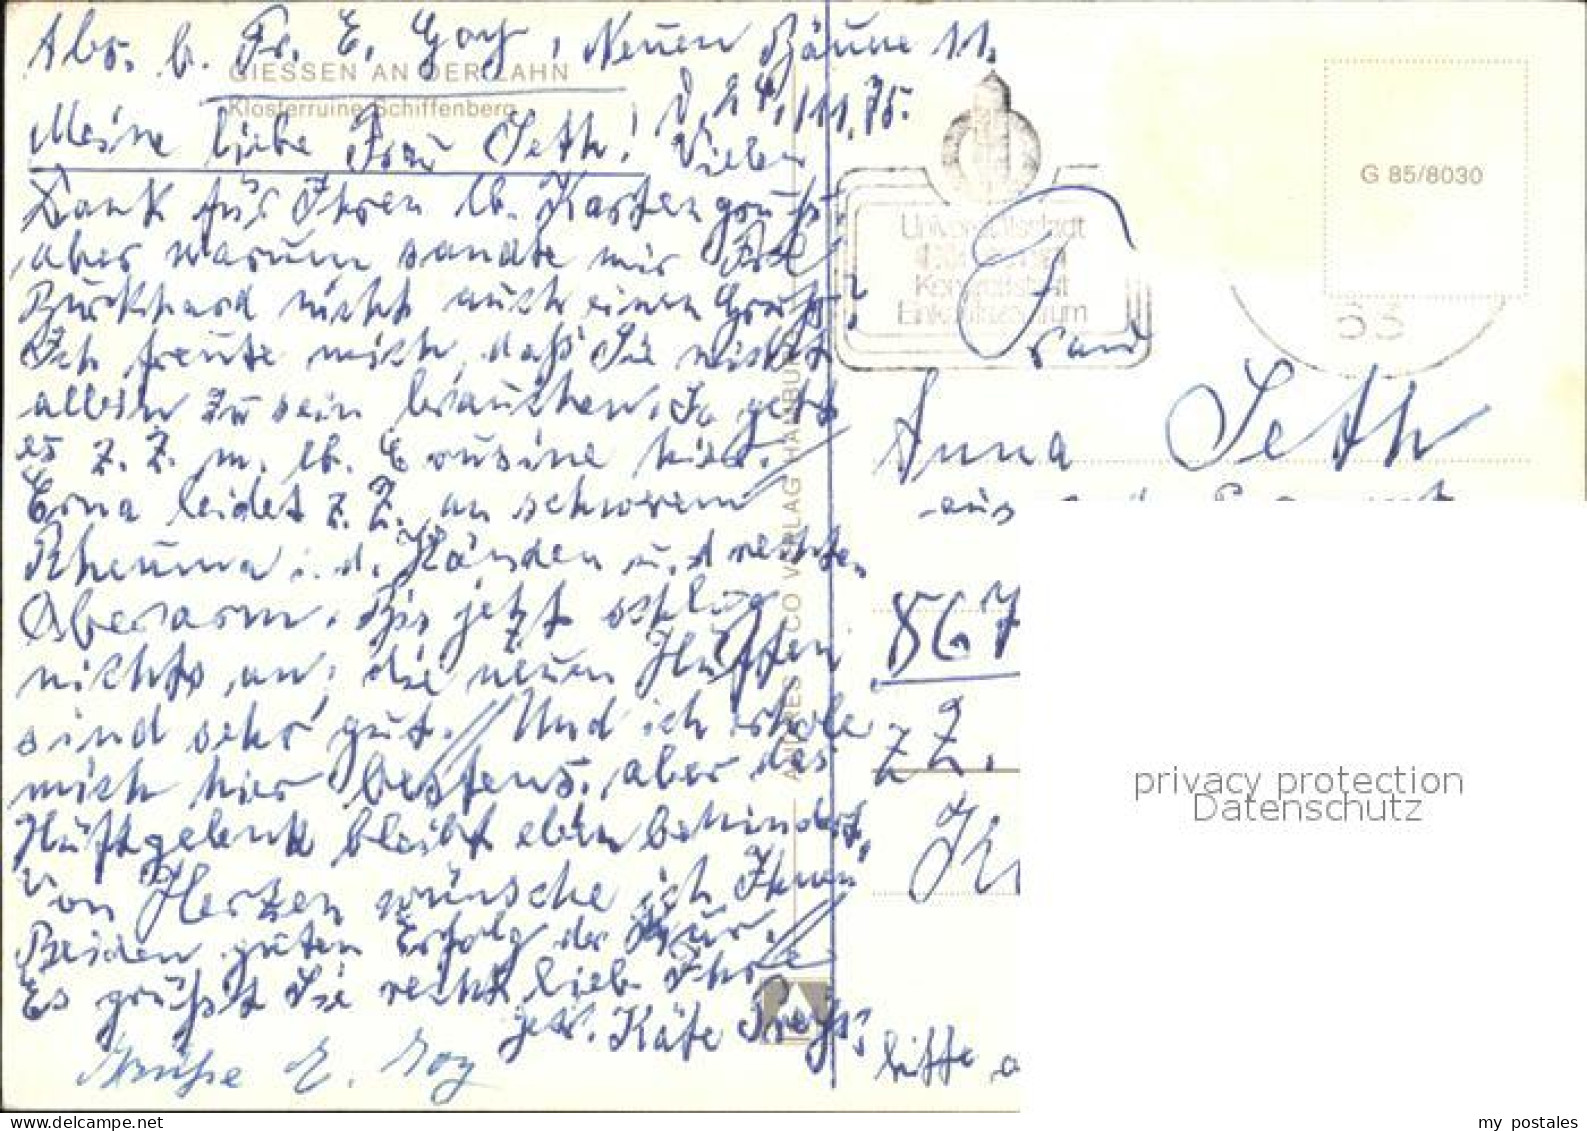 Abs. b. Fr. E. Goy, Neuen Bäume 11.
GIESSEN AN DER LAHN
Klosterruine Schiffenberg
d. 24./11.75.
Meine liebe Frau Seth! Vielen
Dank für Ihren lb. Kartengruß,
aber warum sandte mir Frl.
Burkhard nicht auch einen Gruß?
Ich freute mich, daß Sie nicht
allein zu sein brauchen. So geht
es z. Z. m. lb. Cousine hier.
Erna leidet z. Z. an schwerem
Rheuma i. d. Händen u. d. rechten
Oberarm. Bis jetzt schlug
nichts an; die neuen Hüften
sind sehr gut. Und ich erhole
mich hier bestens, aber das
Hüftgelenk bleibt eben behindert.
Von Herzen wünsche ich Ihnen
Beiden guten Erfolg der Kur.
Es grüßt Sie recht lieb Ihre
getr. Käte Preyß
Grüße E. Goy
ANDRES + CO VERLAG HAMBURG
Universitätsstadt
Kongreßstadt
Einkaufszentrum
G 85/8030
63
Frau
Anna Seth
aus
867
z Z.
bitte
privacy protection
Datenschutz
my postales